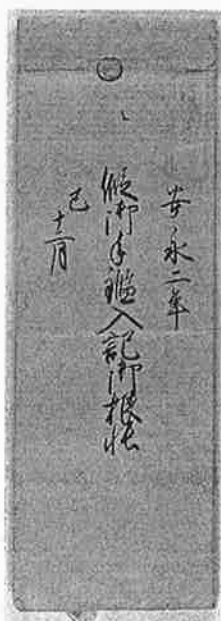 安永二年
縦御手鑑入記御根帳
巳十二月